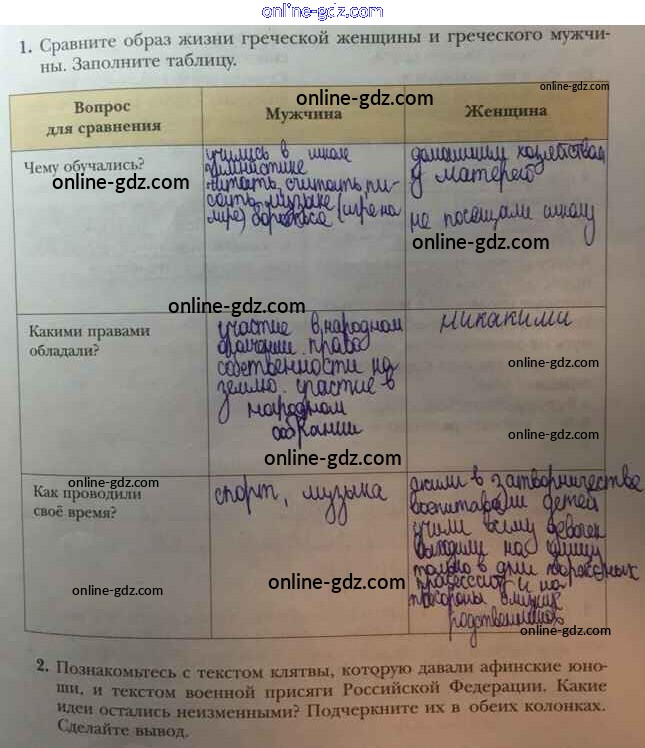 online-gdz.com
1. Сравните образ жизни греческой женщины и греческого мужчи-
ны. Заполните таблицу.
online-gdz.com
online-gdz.com
Вопрос
для сравнения
Мужчина
Женщина
Чему обучались?
online-gdz.com
учились в школе
гимнастике
читать, считать, пи-
сать, музыке (игре на
лире) борьбе
домашнему хозяйству
у матерей
не посещали школу
online-gdz.com
online-gdz.com
Какими правами
обладали?
участие в народном
собственности на
землю. участие в
народном
собрании
никакими
online-gdz.com
online-gdz.com
online-gdz.com
Как проводили
своё время?
online-gdz.com
online-gdz.com
спорт, музыка
online-gdz.com
жили в затворничестве
воспитывали детей
учили всему девочек
выходили на улицу
только в дни
процессий и на
похороны близких
родственников
online-gdz.com
2. Познакомьтесь с текстом клятвы, которую давали афинские юно-
ши, и текстом военной присяги Российской Федерации. Какие
идеи остались неизменными? Подчеркните их в обеих колонках.
Сделайте вывод.